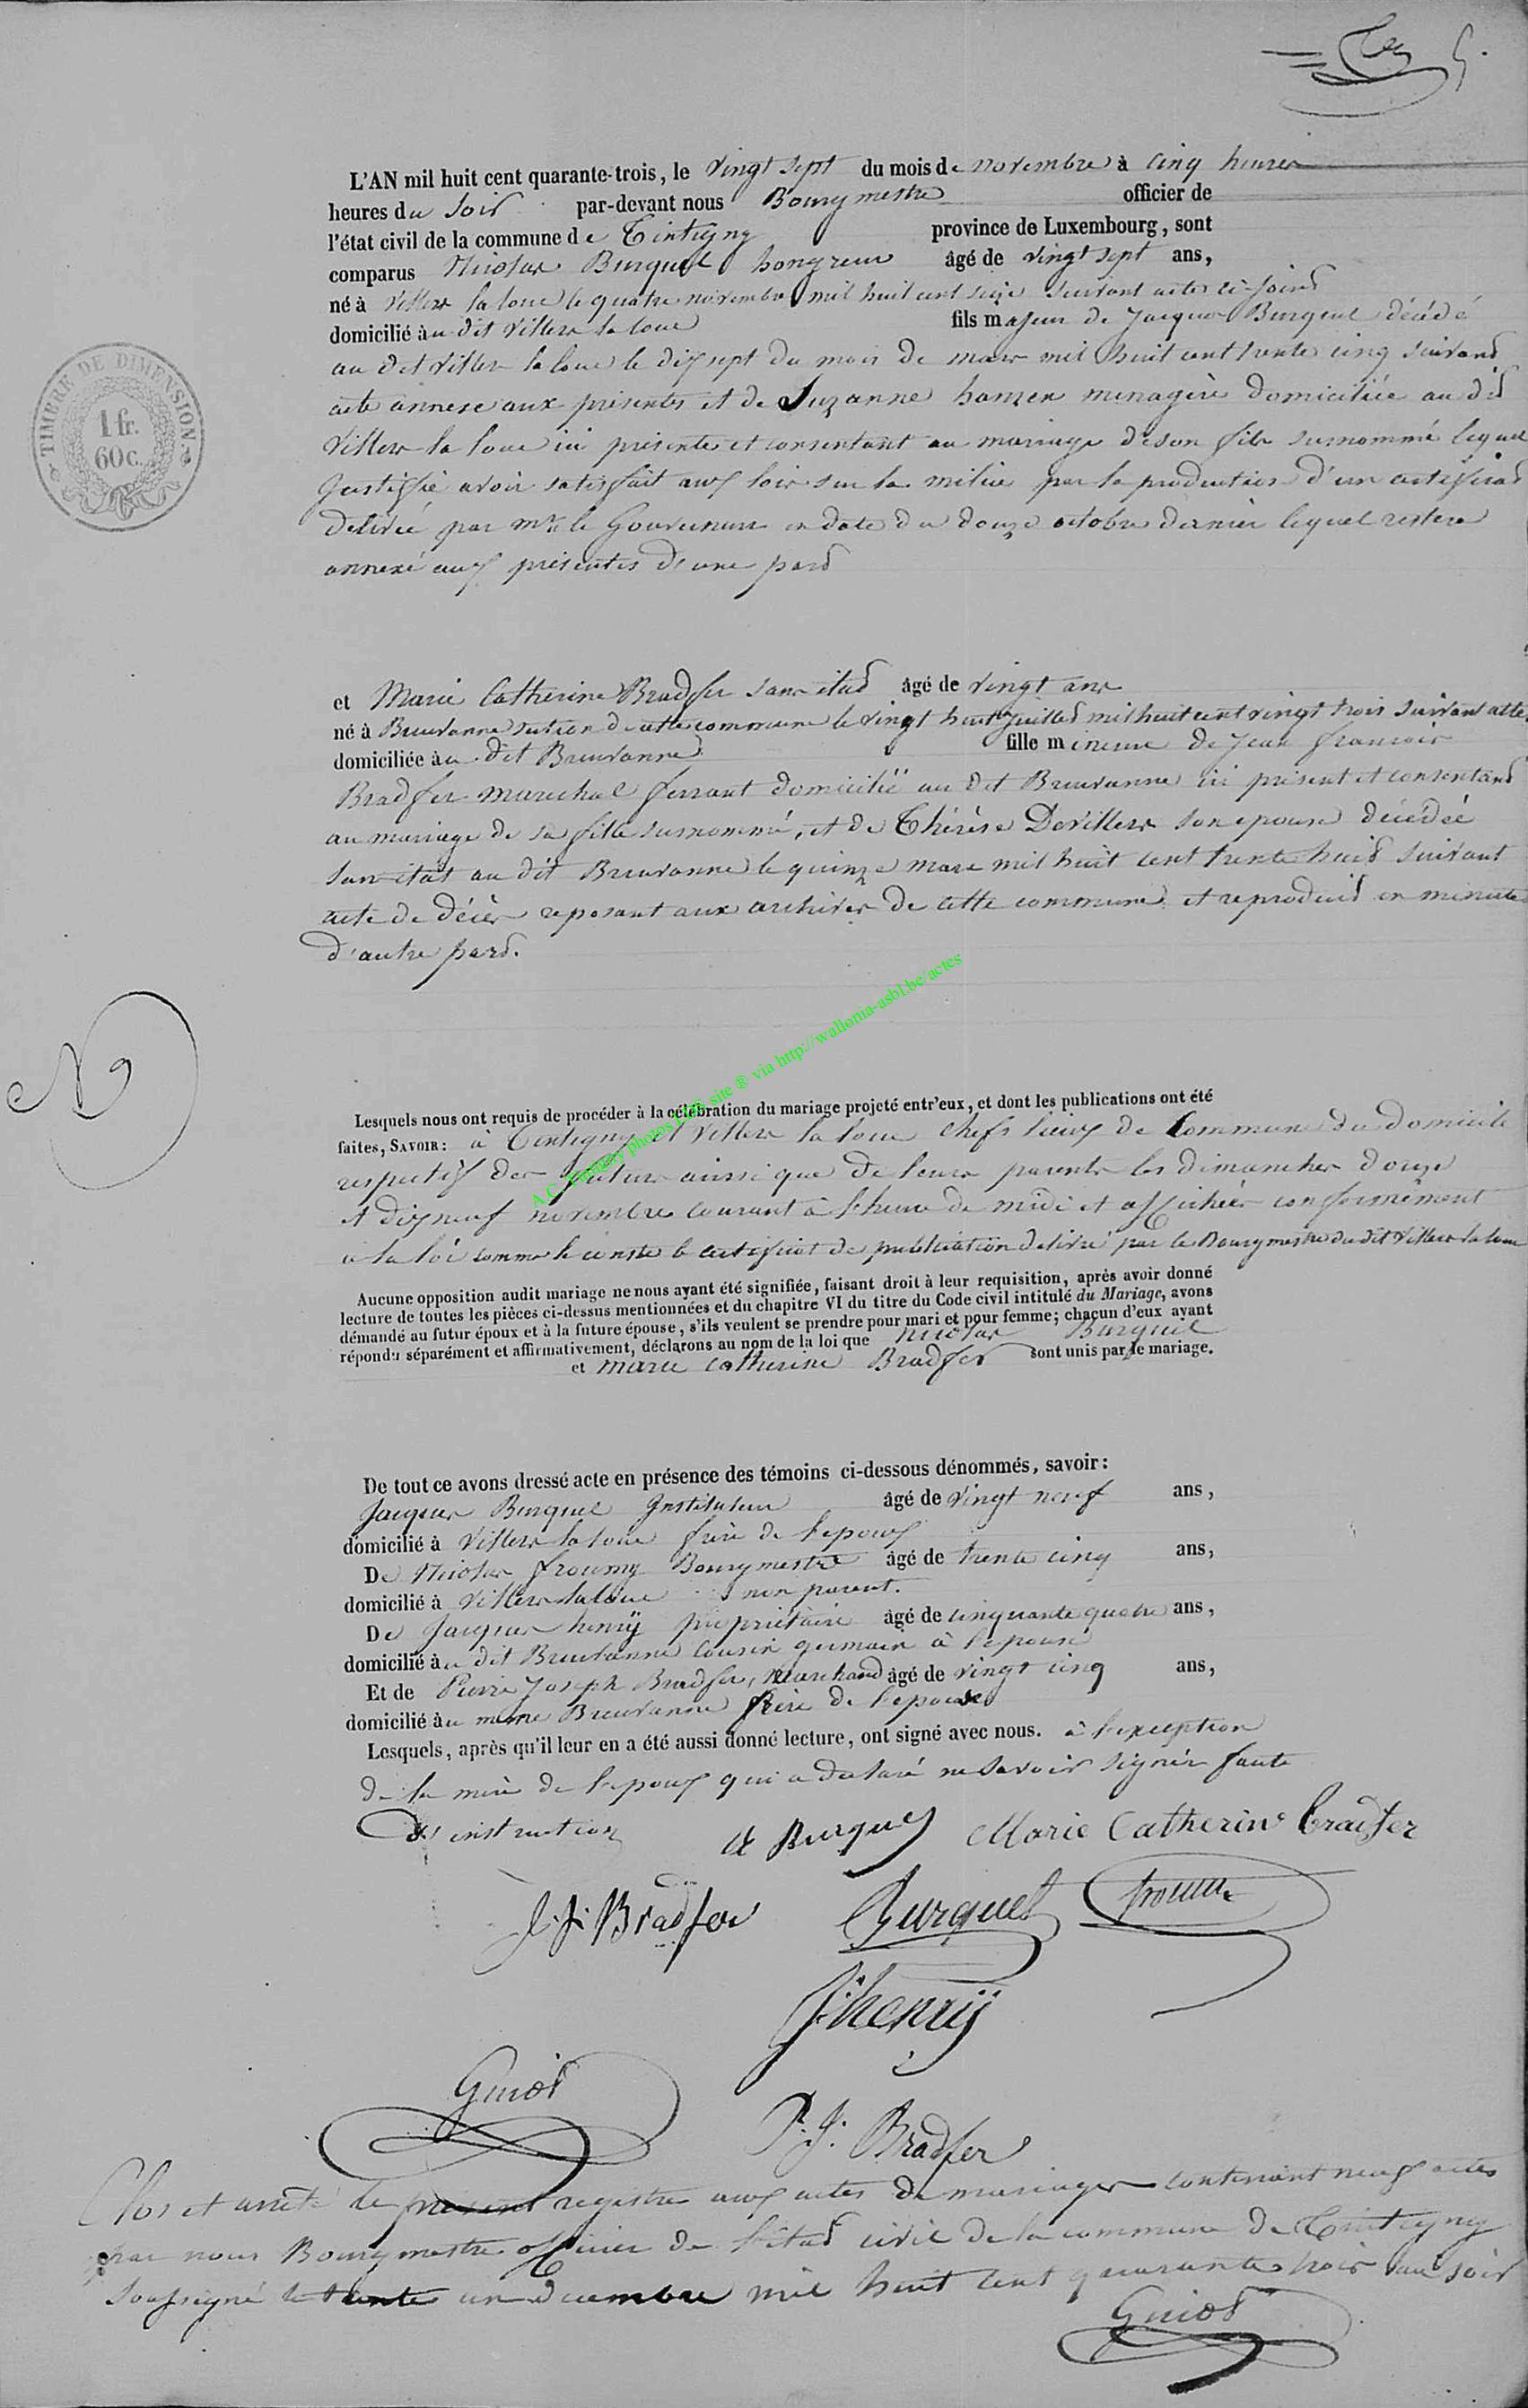 L'AN mil huit cent quarante-trois, le vingt sept du mois de novembre à cinq heures
heures du soir par-devant nous Bourgmestre officier de
l'état civil de la commune de Tintigny province de Luxembourg, sont
comparus Nicolas Burquel hongreur âgé de vingt sept ans,
né à Villers la loue le quatre novembre mil huit cent seize suivant actes ci-joint
domicilié au dit Villers la loue fils majeur de Jacques Burquel décédé
au dit Villers la loue le dix sept du mois de mars mil huit cent trente cinq suivant
acte annexé aux présentes et de Suzanne hanzen menagère domiciliée au dit
Villers la loue ici présente et consentant au mariage de son fils surnommé lequel
Justifie avoir satisfait aux lois sur la milice par la production d'un certificat
délivré par mr le Gouverneur en date du douze octobre dernier lequel restera
annexé aux présentes d'une part
et Marie Catherine Bradfer sans état âgé de vingt ans
né à Breuvanne section de cette commune le vingt huit juillet mil huit cent vingt trois suivant acte
domiciliée au dit Breuvanne fille mineure de Jean françois
Bradfer marechal ferrant domicilié au dit Breuvanne ici présent et consentant
au mariage de sa fille surnommé, et de Thérèse Devillers son epouse décédée
sans état au dit Breuvanne le quinze mars mil huit cent trente huit suivant
acte de décès reposant aux archives de cette commune et reproduit en minute
d'autre part.
N 9
Lesquels nous ont requis de procéder à la célébration du mariage projeté entr'eux, et dont les publications ont été
faites, SAVOIR: à Tintigny et Villers la loue chefs lieux de Commune du domicile
respectif des futurs ainsi que de leurs parents les dimanches douze
et dix neuf novembre courant à l'heure de midi et affichées conformément
à la loi comme le conste le certificat de publication délivré par le Bourgmestre du dit Villers la loue
Aucune opposition audit mariage ne nous ayant été signifiée, faisant droit à leur requisition, après avoir donné
lecture de toutes les pièces ci-dessus mentionnées et du chapitre VI du titre du Code civil intitulé du Mariage, avons
démandé au futur époux et à la future épouse, s'ils veulent se prendre pour mari et pour femme; chacun d'eux ayant
répondu séparément et affirmativement, déclarons au nom de la loi que nicolas Burquel
et marie catherine Bradfer sont unis par le mariage.
De tout ce avons dressé acte en présence des témoins ci-dessous dénommés, savoir:
Jacques Burquel Instituteur âgé de vingt neuf ans,
domicilié à Villers la loue frère de l'epoux
De Nicolas froumy Bourgmestre âgé de trente cinq ans,
domicilié à Villers la loue non parent.
De Jacques henrÿ propriétaire âgé de cinquante quatre ans,
domicilié au dit Breuvanne Cousin germain à l'epouse
Et de Pierre Joseph Bradfer, Marchand âgé de vingt cinq ans,
domicilié au meme Breuvanne frère de l'epouse
Lesquels, après qu'il leur en a été aussi donné lecture, ont signé avec nous. à l'exception
de la mère de l'epoux qui a declaré ne savoir signer faute
d'instruction
Burquel Marie Catherine Bradfer
J. f. Bradfer Burquel
J henrÿ
Guiot
P. J. Bradfer
Clos et arrêté le présent registre aux actes de mariages contenant neuf actes
par nous Bourgmestre officier de l'état civil de la commune de Tintigny
soussigné le trente un decembre mil huit cent quarante trois au soir
Guiot
TIMBRE DE DIMENSION
1 fr.
60 c.
A.C. Tintigny photos site ® via http://wallonia-asbl.be/actes